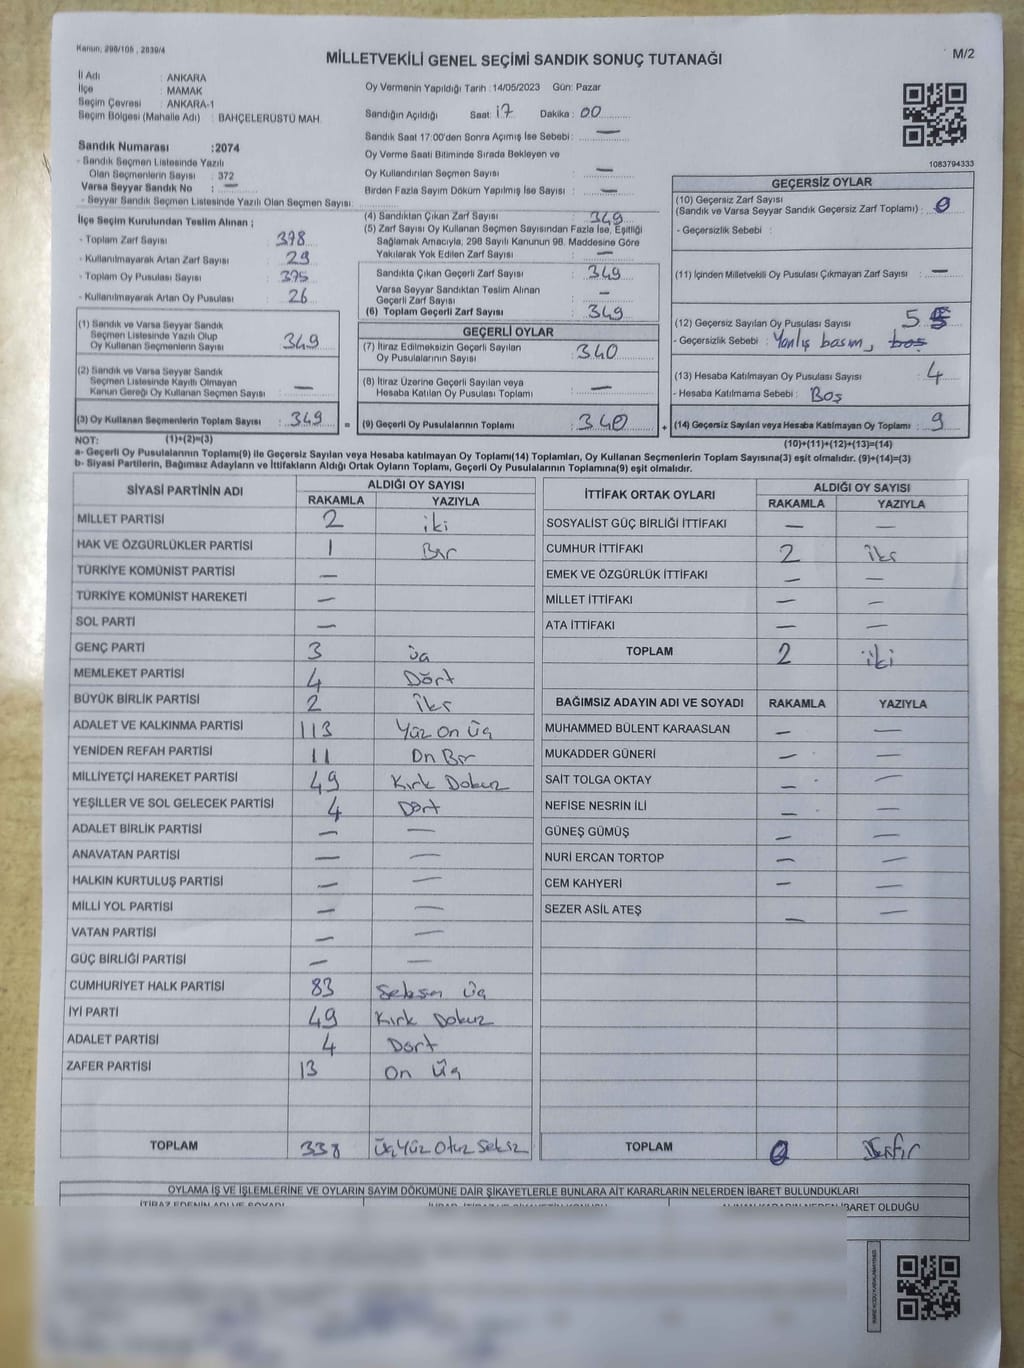 Kanun, 298/105 , 2839/4
MİLLETVEKİLİ GENEL SEÇİMİ SANDIK SONUÇ TUTANAĞI
M/2
İl Adı : ANKARA
İlçe : MAMAK
Seçim Çevresi : ANKARA-1
Seçim Bölgesi (Mahalle Adı) : BAHÇELERÜSTÜ MAH.
Sandık Numarası :2074
- Sandık Seçmen Listesinde Yazılı
Olan Seçmenlerin Sayısı : 372
Varsa Seyyar Sandık No : —
- Seyyar Sandık Seçmen Listesinde Yazılı Olan Seçmen Sayısı:
Oy Vermenin Yapıldığı Tarih :14/05/2023 Gün: Pazar
Sandığın Açıldığı Saat: 17 Dakika : 00
Sandık Saat 17:00'den Sonra Açımış İse Sebebi: —
Oy Verme Saati Bitiminde Sırada Bekleyen ve
Oy Kullandırılan Seçmen Sayısı : —
Birden Fazla Sayım Döküm Yapılmış İse Sayısı : —
1083794333
İlçe Seçim Kurulundan Teslim Alınan ;
- Toplam Zarf Sayısı : 378
- Kullanılmayarak Artan Zarf Sayısı : 29
- Toplam Oy Pusulası Sayısı : 375
- Kullanılmayarak Artan Oy Pusulası : 26
(1) Sandık ve Varsa Seyyar Sandık
Seçmen Listesinde Yazılı Olup
Oy Kullanan Seçmenlerin Sayısı : 349
(2) Sandık ve Varsa Seyyar Sandık
Seçmen Listesinde Kayıtlı Olmayan
Kanun Gereği Oy Kullanan Seçmen Sayısı : —
(3) Oy Kullanan Seçmenlerin Toplam Sayısı : 349
(4) Sandıktan Çıkan Zarf Sayısı : 349
(5) Zarf Sayısı Oy Kullanan Seçmen Sayısından Fazla İse, Eşitliği
Sağlamak Amacıyla, 298 Sayılı Kanunun 98. Maddesine Göre
Yakılarak Yok Edilen Zarf Sayısı : —
Sandıkta Çıkan Geçerli Zarf Sayısı : 349
Varsa Seyyar Sandıktan Teslim Alınan
Geçerli Zarf Sayısı : —
(6) Toplam Geçerli Zarf Sayısı : 349
GEÇERLİ OYLAR
(7) İtiraz Edilmeksizin Geçerli Sayılan
Oy Pusulalarının Sayısı : 340
(8) İtiraz Üzerine Geçerli Sayılan veya
Hesaba Katılan Oy Pusulası Toplamı : —
= (9) Geçerli Oy Pusulalarının Toplamı : 340
GEÇERSİZ OYLAR
(10) Geçersiz Zarf Sayısı
(Sandık ve Varsa Seyyar Sandık Geçersiz Zarf Toplamı) : 0
- Geçersizlik Sebebi :
(11) İçinden Milletvekili Oy Pusulası Çıkmayan Zarf Sayısı : —
(12) Geçersiz Sayılan Oy Pusulası Sayısı : 5
- Geçersizlik Sebebi : Yanlış basım, boş
(13) Hesaba Katılmayan Oy Pusulası Sayısı : 4
- Hesaba Katılmama Sebebi : Boş
+ (14) Geçersiz Sayılan veya Hesaba Katılmayan Oy Toplamı : 9
NOT: (1)+(2)=(3)
(10)+(11)+(12)+(13)=(14)
a- Geçerli Oy Pusulalarının Toplamı(9) ile Geçersiz Sayılan veya Hesaba Katılmayan Oy Toplamı(14) Toplamları, Oy Kullanan Seçmenlerin Toplam Sayısına(3) eşit olmalıdır. (9)+(14)=(3)
b- Siyasi Partilerin, Bağımsız Adayların ve İttifakların Aldığı Ortak Oyların Toplamı, Geçerli Oy Pusulalarının Toplamına(9) eşit olmalıdır.
SİYASİ PARTİNİN ADI ALDIĞI OY SAYISI
RAKAMLA YAZIYLA
MİLLET PARTİSİ 2 iki
HAK VE ÖZGÜRLÜKLER PARTİSİ 1 Bir
TÜRKİYE KOMÜNİST PARTİSİ —
TÜRKİYE KOMÜNİST HAREKETİ —
SOL PARTİ —
GENÇ PARTİ 3 üç
MEMLEKET PARTİSİ 4 Dört
BÜYÜK BİRLİK PARTİSİ 2 İki
ADALET VE KALKINMA PARTİSİ 113 Yüz On Üç
YENİDEN REFAH PARTİSİ 11 On Bir
MİLLİYETÇİ HAREKET PARTİSİ 49 Kırk Dokuz
YEŞİLLER VE SOL GELECEK PARTİSİ 4 Dört
ADALET BİRLİK PARTİSİ — —
ANAVATAN PARTİSİ — —
HALKIN KURTULUŞ PARTİSİ — —
MİLLİ YOL PARTİSİ — —
VATAN PARTİSİ — —
GÜÇ BİRLİĞİ PARTİSİ — —
CUMHURİYET HALK PARTİSİ 83 Seksen Üç
İYİ PARTİ 49 Kırk Dokuz
ADALET PARTİSİ 4 Dört
ZAFER PARTİSİ 13 On Üç
TOPLAM 338 Üç Yüz Otuz Sekiz
İTTİFAK ORTAK OYLARI ALDIĞI OY SAYISI
RAKAMLA YAZIYLA
SOSYALİST GÜÇ BİRLİĞİ İTTİFAKI — —
CUMHUR İTTİFAKI 2 İki
EMEK VE ÖZGÜRLÜK İTTİFAKI — —
MİLLET İTTİFAKI — —
ATA İTTİFAKI — —
TOPLAM 2 iki
BAĞIMSIZ ADAYIN ADI VE SOYADI RAKAMLA YAZIYLA
MUHAMMED BÜLENT KARAASLAN — —
MUKADDER GÜNERİ — —
SAİT TOLGA OKTAY — —
NEFİSE NESRİN İLİ — —
GÜNEŞ GÜMÜŞ — —
NURİ ERCAN TORTOP — —
CEM KAHYERİ — —
SEZER ASİL ATEŞ — —
TOPLAM 0 Sıfır
OYLAMA İŞ VE İŞLEMLERİNE VE OYLARIN SAYIM DÖKÜMÜNE DAİR ŞİKAYETLERLE BUNLARA AİT KARARLARIN NELERDEN İBARET BULUNDUKLARI
İTİRAZ EDENİN ADI VE SOYADI İBARET OLDUĞU